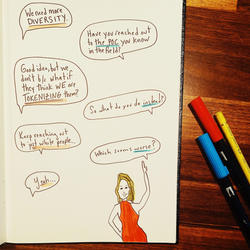 We need more
DIVERSITY.
Have you reached out
to the POC you know
in the field?
Good idea, but we
don't b/c what if
they think WE are
TOKENIZING them?
So what do you do instead?
Keep reaching out
to just white people...
Which seems worse?
Yeah...